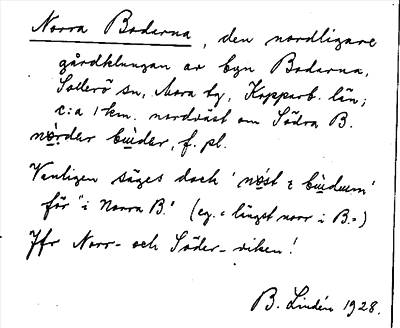 Norra Bodarna, den nordligare
gårdklungan av byn Bodarna,
Sollerö sn, Mora tg, Kopparb. län;
c:a 1 km. nordväst om Södra B.
nò̤rder bùder, f. pl.
Vanligen säges dock 'nǿst i bùdum'
för "i Norra B." (eg. = längst norr i B. =)
Jfr Norr- och Söder-viken!
B. Lindén 1928.